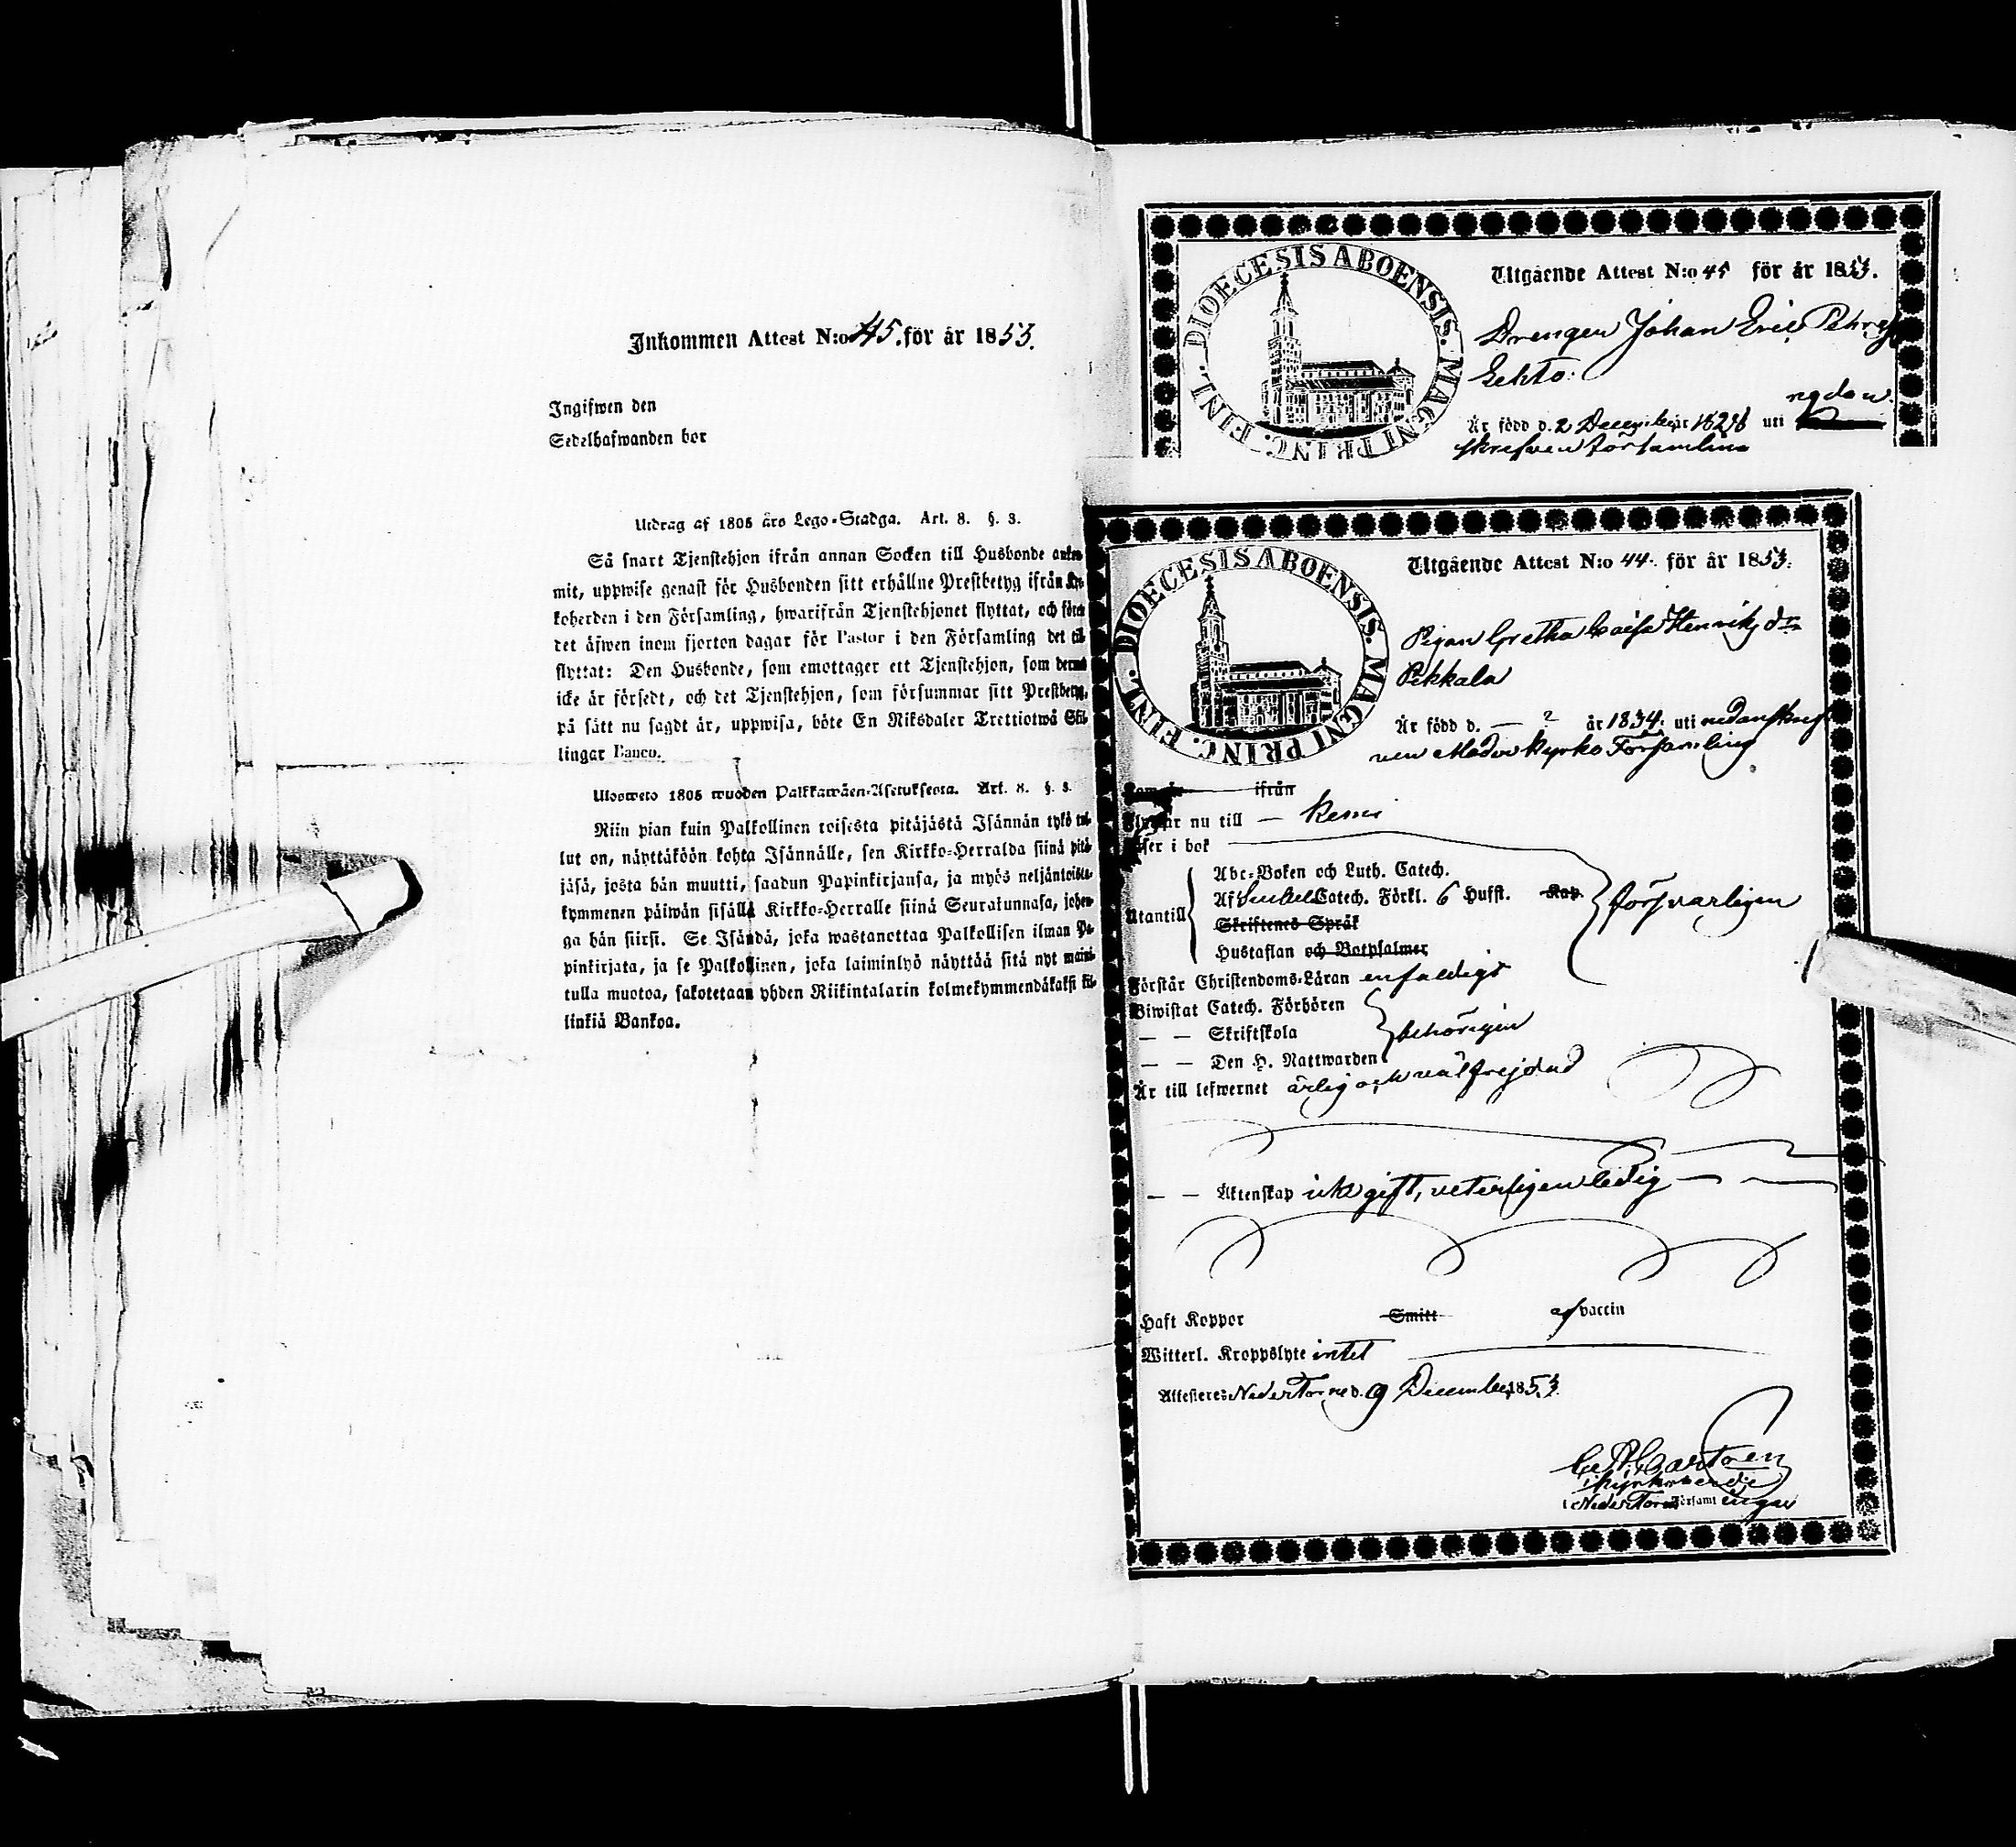 Inkommen Attest N:o 45. för år 1853.
Ingifwen den
Sedelhafwanden bor
Utdrag af 1805 års Lego-Stadga. Art. 8. §. 3.
Så snart Tjenstehjon ifrån annan Socken till Husbonde ankom-
mit, uppwise genast för Husbonden sitt erhållne Prestbetyg ifrån Kyr-
koherden i den Församling, hwarifrån Tjenstehjonet flyttat, och förete
det äfwen inom fjorton dagar för Pastor i den Församling det till
flyttat: Den Husbonde, som emottager ett Tjenstehjon, som dermed
icke är försedt, och det Tjenstehjon, som försummar sitt Prestbetyg,
på sätt nu sagdt är, uppwisa, böte En Riksdaler Trettiotwå Skil-
lingar Banco.
Ulosweto 1805 wuoden Palkkawäen-Asetuksesta. Art. 8. §. 3.
Niin pian kuin Palkollinen toisesta pitäjästä Isännän tykö tul-
lut on, näyttäköön kohta Isännälle, sen Kirkko-Herralda siinä pitä-
jäsä, josta hän muutti, saadun Papinkirjansa, ja myös neljäntoista-
kymmenen päiwän sisällä Kirkko-Herralle siinä Seurakunnasa, johon-
ga hän siirsi. Se Isändä, joka wastanottaa Palkollisen ilman Pa-
pinkirjata, ja se Palkollinen, joka laiminlyö näyttää sitä nyt maini-
tulla muotoa, sakotetaan yhden Riikintalarin kolmekymmendäkaksi kil-
linkiä Bankoa.
DIOECESIS ABOENSIS. MAGNI PRINC. FINL.
Utgående Attest N:o 45 för år 1853.
Drengen Johan Eric Pehrss
Lehto:
nedan
Är född d. 2 December 1828 uti
skrefven församling
DIOECESIS ABOENSIS. MAGNI PRINC. FINL.
Utgående Attest N:o 44. för år 1853.
Pigan Gretha Caisa Henriksdr
Pekkala
Är född d. — ? år 1834. uti nedanskref
ven Moderkyrko Församling
ifrån
Flyttar nu till — Kemi
Läser i bok
Abc-Boken och Luth. Catech.
Utantill Af Catech. Förkl. 6 Hufst. Kap. försvarligen
Skriftenes Språk
Hustaflan och Botpsalmer
Förstår Christendoms-Läran enfaldigt
Biwistat Catech. Förhören
— — Skriftskola behörigen
— — Den H. Nattwarden
Är till lefwernet ärlig och välfrejdad
— — Äktenskap icke gift, veterligen ledig
Haft Koppor Smitt af vaccin
Witterl. Kroppslyte intet
Attesteres Neder Torne d. 9 December 1853.
Kyrkoherde
i Neder Torne Församlingar